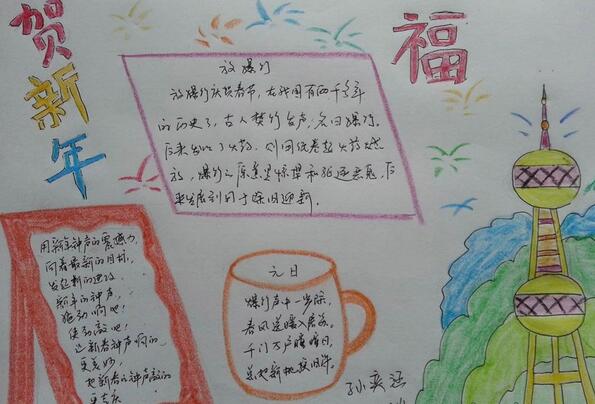 贺新年
福
放爆竹
放爆竹庆贺春节，在我国有两千多年
的历史了，古人焚竹发声，名曰爆竹。
后来发明了火药，则用纸卷起火药燃
放，爆竹之原意是惊旱和驱逐恶鬼，后
来发展到用于除旧迎新。
用新年钟声的震撼力，
向着最新的目标，
发起新的进攻
新年的钟声，
驱动响吧！
使劲敲吧！
让新春钟声响的
更美妙，
把新春的钟声敲的
更吉庆
元日
爆竹声中一岁除，
春风送暖入屠苏。
千门万户曈曈日，
总把新桃换旧符。
孙奕涵